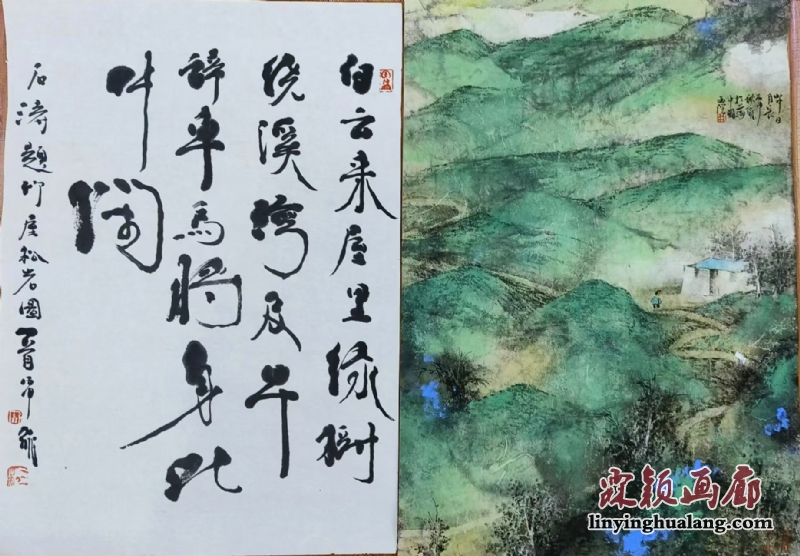 白云来屋里绿树
绕溪湾及午
辞车马将身此
中闲
石涛题竹屋松岩图
霖颖画廊
linyinghualang.com